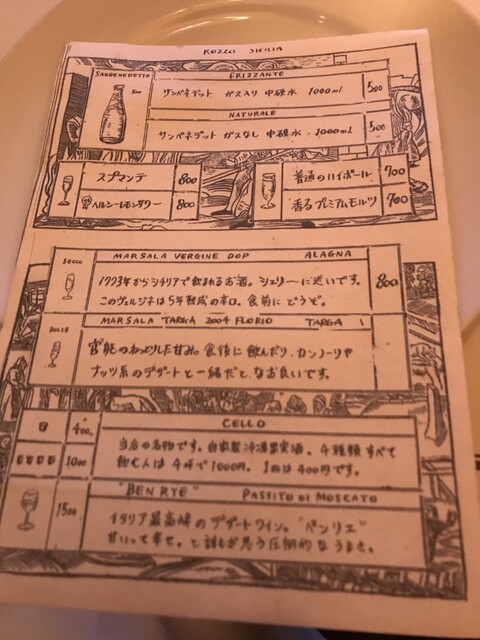 ROZZO SICILIA
SANBENEDETTO
FRIZZANTE
サンベネデット ガス入り 中硬水 1000ml 500
NATURALE
サンベネデット ガスなし 中硬水 1000ml 500
スプマンテ 800
ヘルシーレモンサワー 800
普通のハイボール 700
香るプレミアムモルツ 700
SECCO
MARSALA VERGINE DOP ALAGNA
1773年からシチリアで飲まれるお酒。シェリーに近いです。
このヴェルジネは5年熟成の辛口。食前にどうぞ。
800
DOLCE
MARSALA TARGA 2004 FLORIO TARGA
官能のねっとりした甘み。食後に飲んだり、カンノーリや
ナッツ系のデザートと一緒だと、なお良いです。
CELLO
400
当店の名物です。自家製冷凍果実酒。4種類すべて
1000
飲む人は4杯で1000円。1杯は400円です。
"BEN RYE" PASSITO DI MOSCATO
1500
イタリア最高峰のデザートワイン。"ベンリエ"
甘いって幸せ。と誰しが思う圧倒的なうまさ。